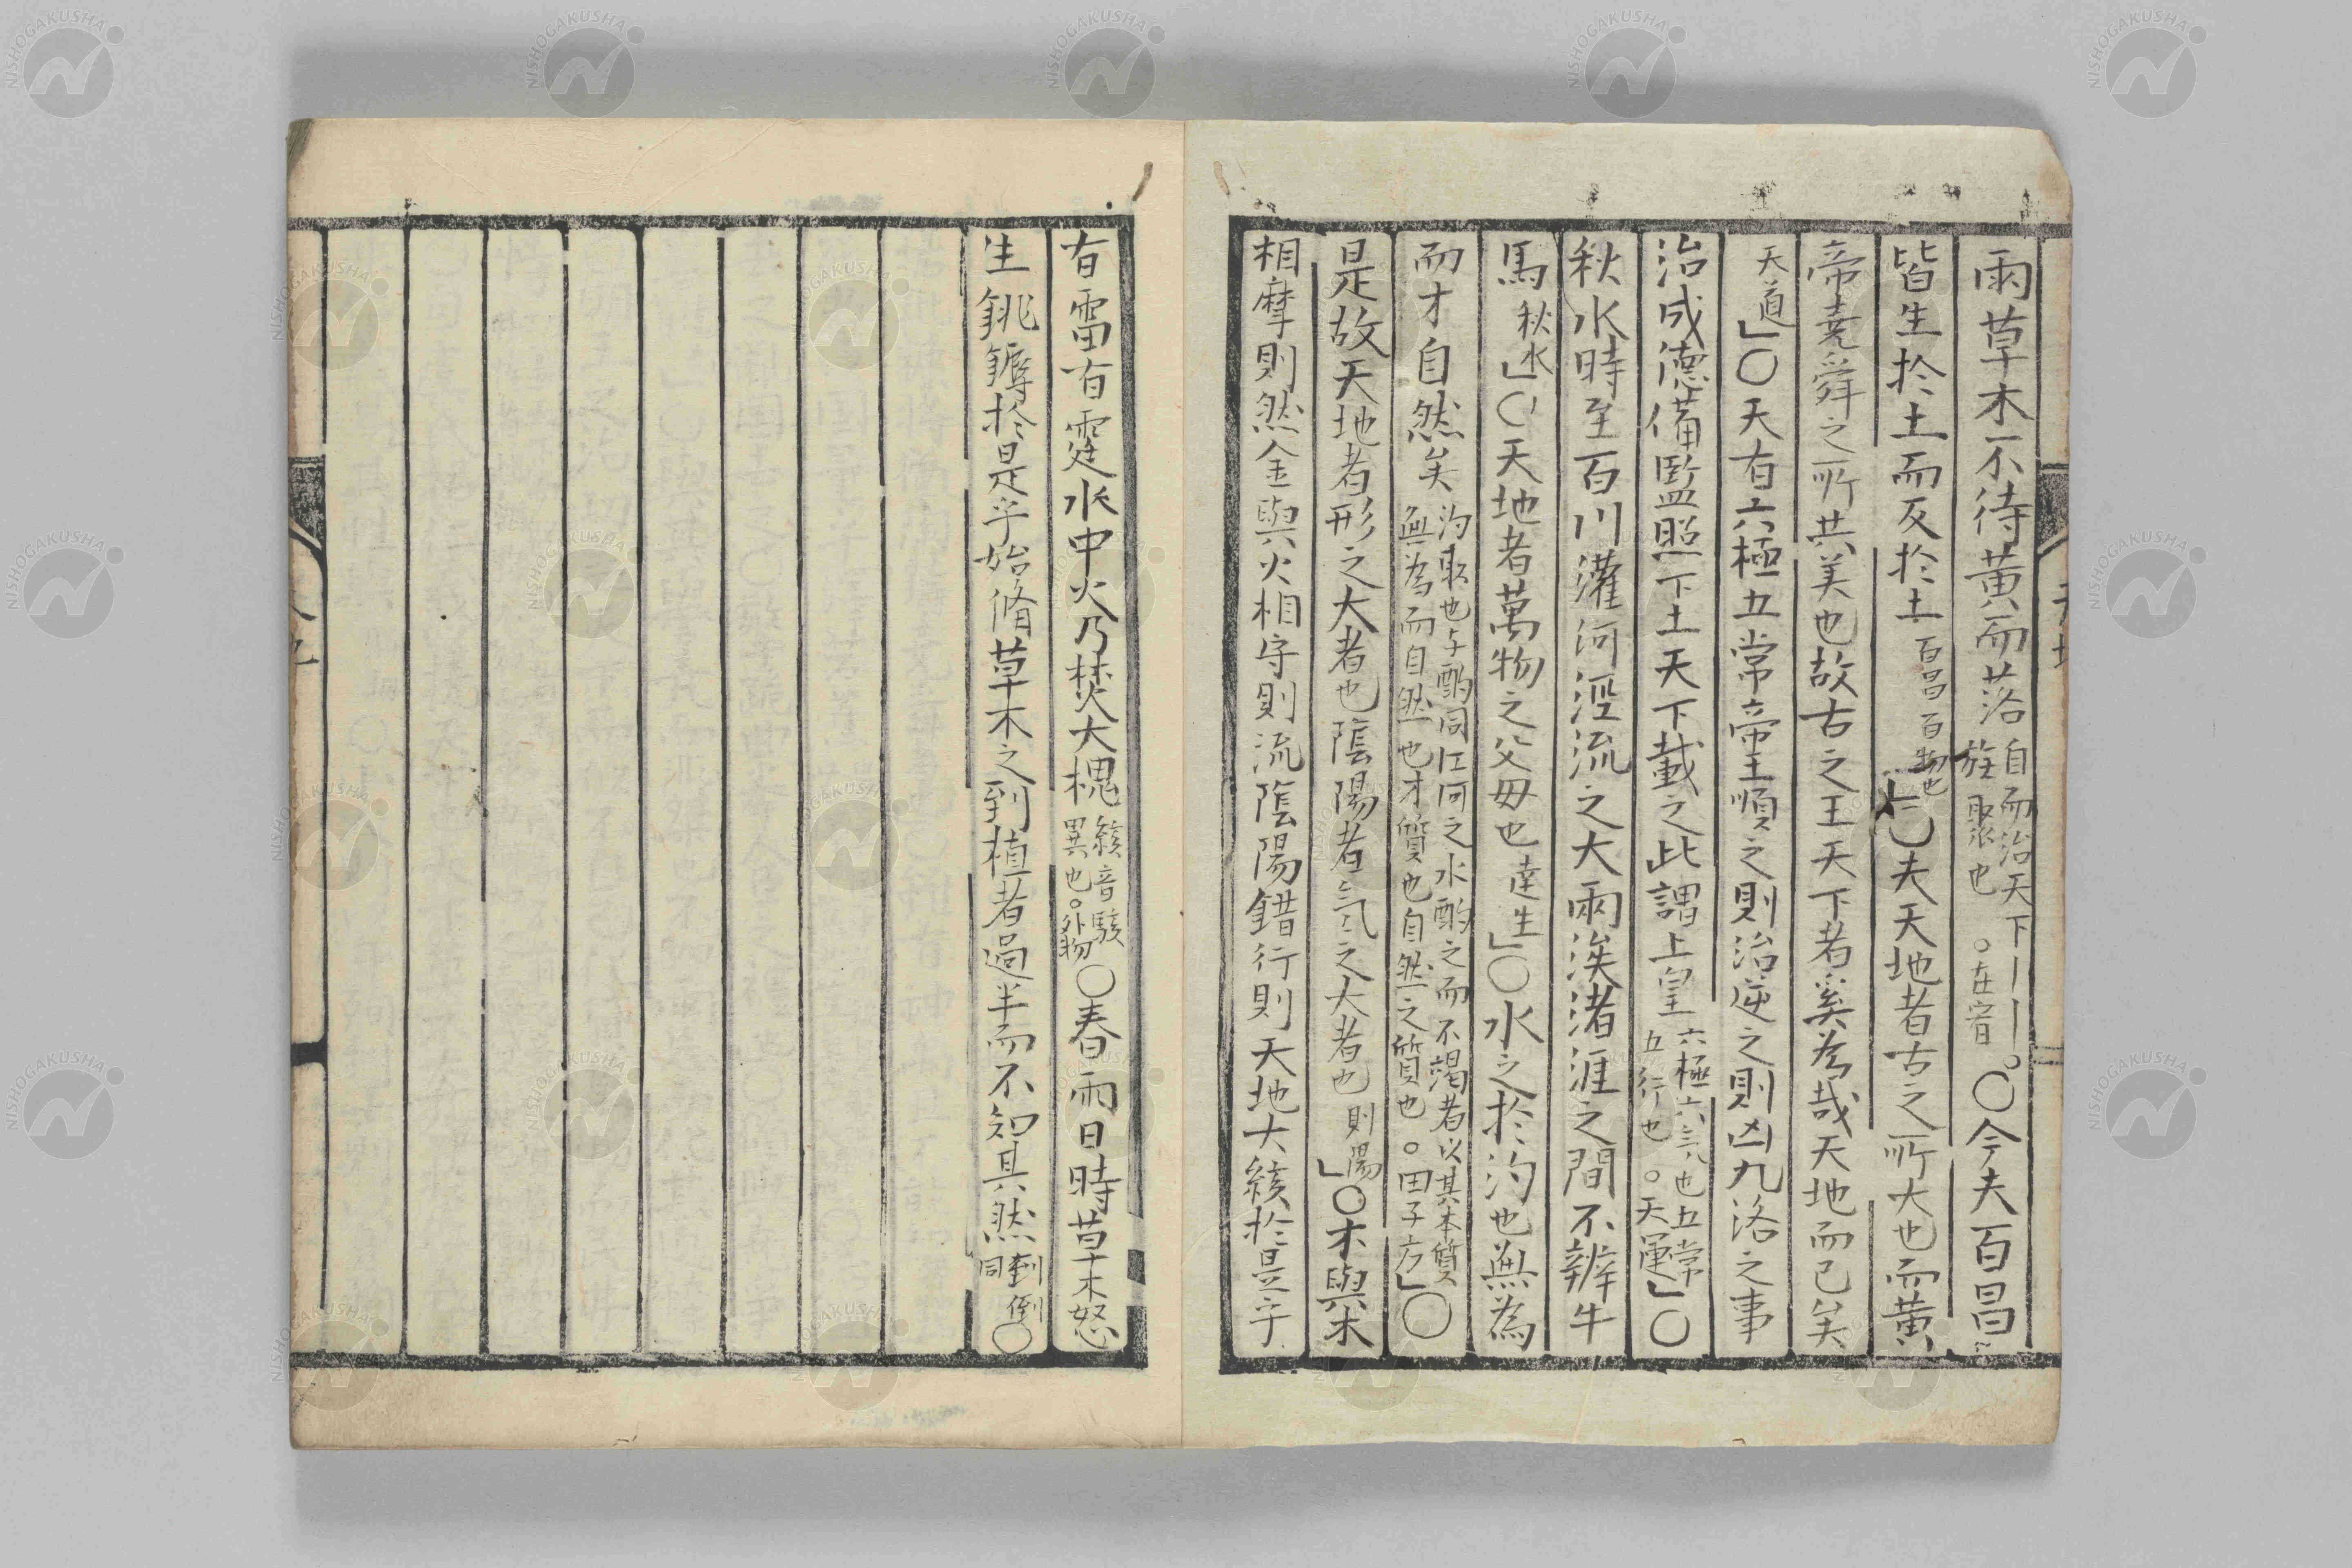 雨草木不待黄而落自而治天下〡〡。族聚也。在宥〇今夫百昌
皆生於土而反於土百昌百物也」〇夫天地者古之所大也而黄
帝堯舜之所共美也故古之王天下者奚為哉天地而已矣
天道」〇天有六極五常帝王順之則治逆之則凶九洛之事
治成德備監照下土天下載之此謂上皇六極六气也五常五行也。天運」〇
秋水時至百川灌河涇流之大兩涘渚涯之間不辨牛
馬秋水」〇天地者萬物之父毋也達生」〇水之於汋也無為
而才自然矣汋取也与酌同江河之水酌之而不竭者以其本質無為而自然也才質也自然之質也。田子方」〇
是故天地者形之大者也陰陽者气之大者也則陽」〇木與木
相摩則然金與火相守則流陰陽錯行則天地大絯於是乎
有雷有霆水中火乃焚大槐絯音駭異也。外物〇春雨日時草木怒
生銚鎒於是乎始脩草木之到植者過半而不知其然到倒同〇
NISHOGAKUSHA